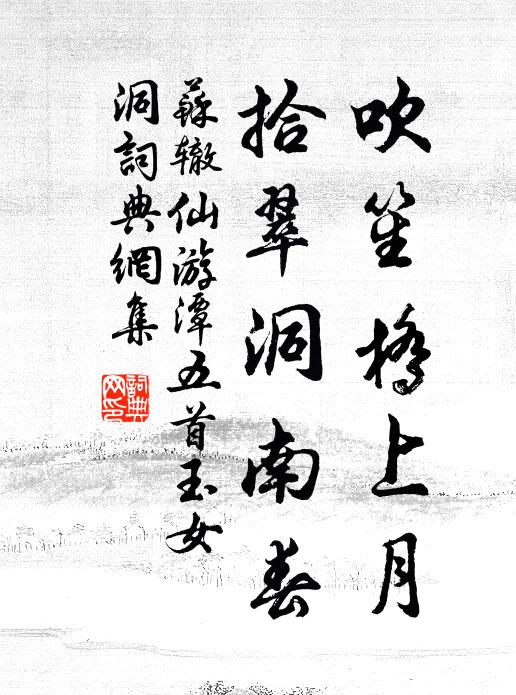 吹笙橋上月
拾翠洞南春
蘇辙仙游潭五首玉女
洞詞典網集
詞典
网印